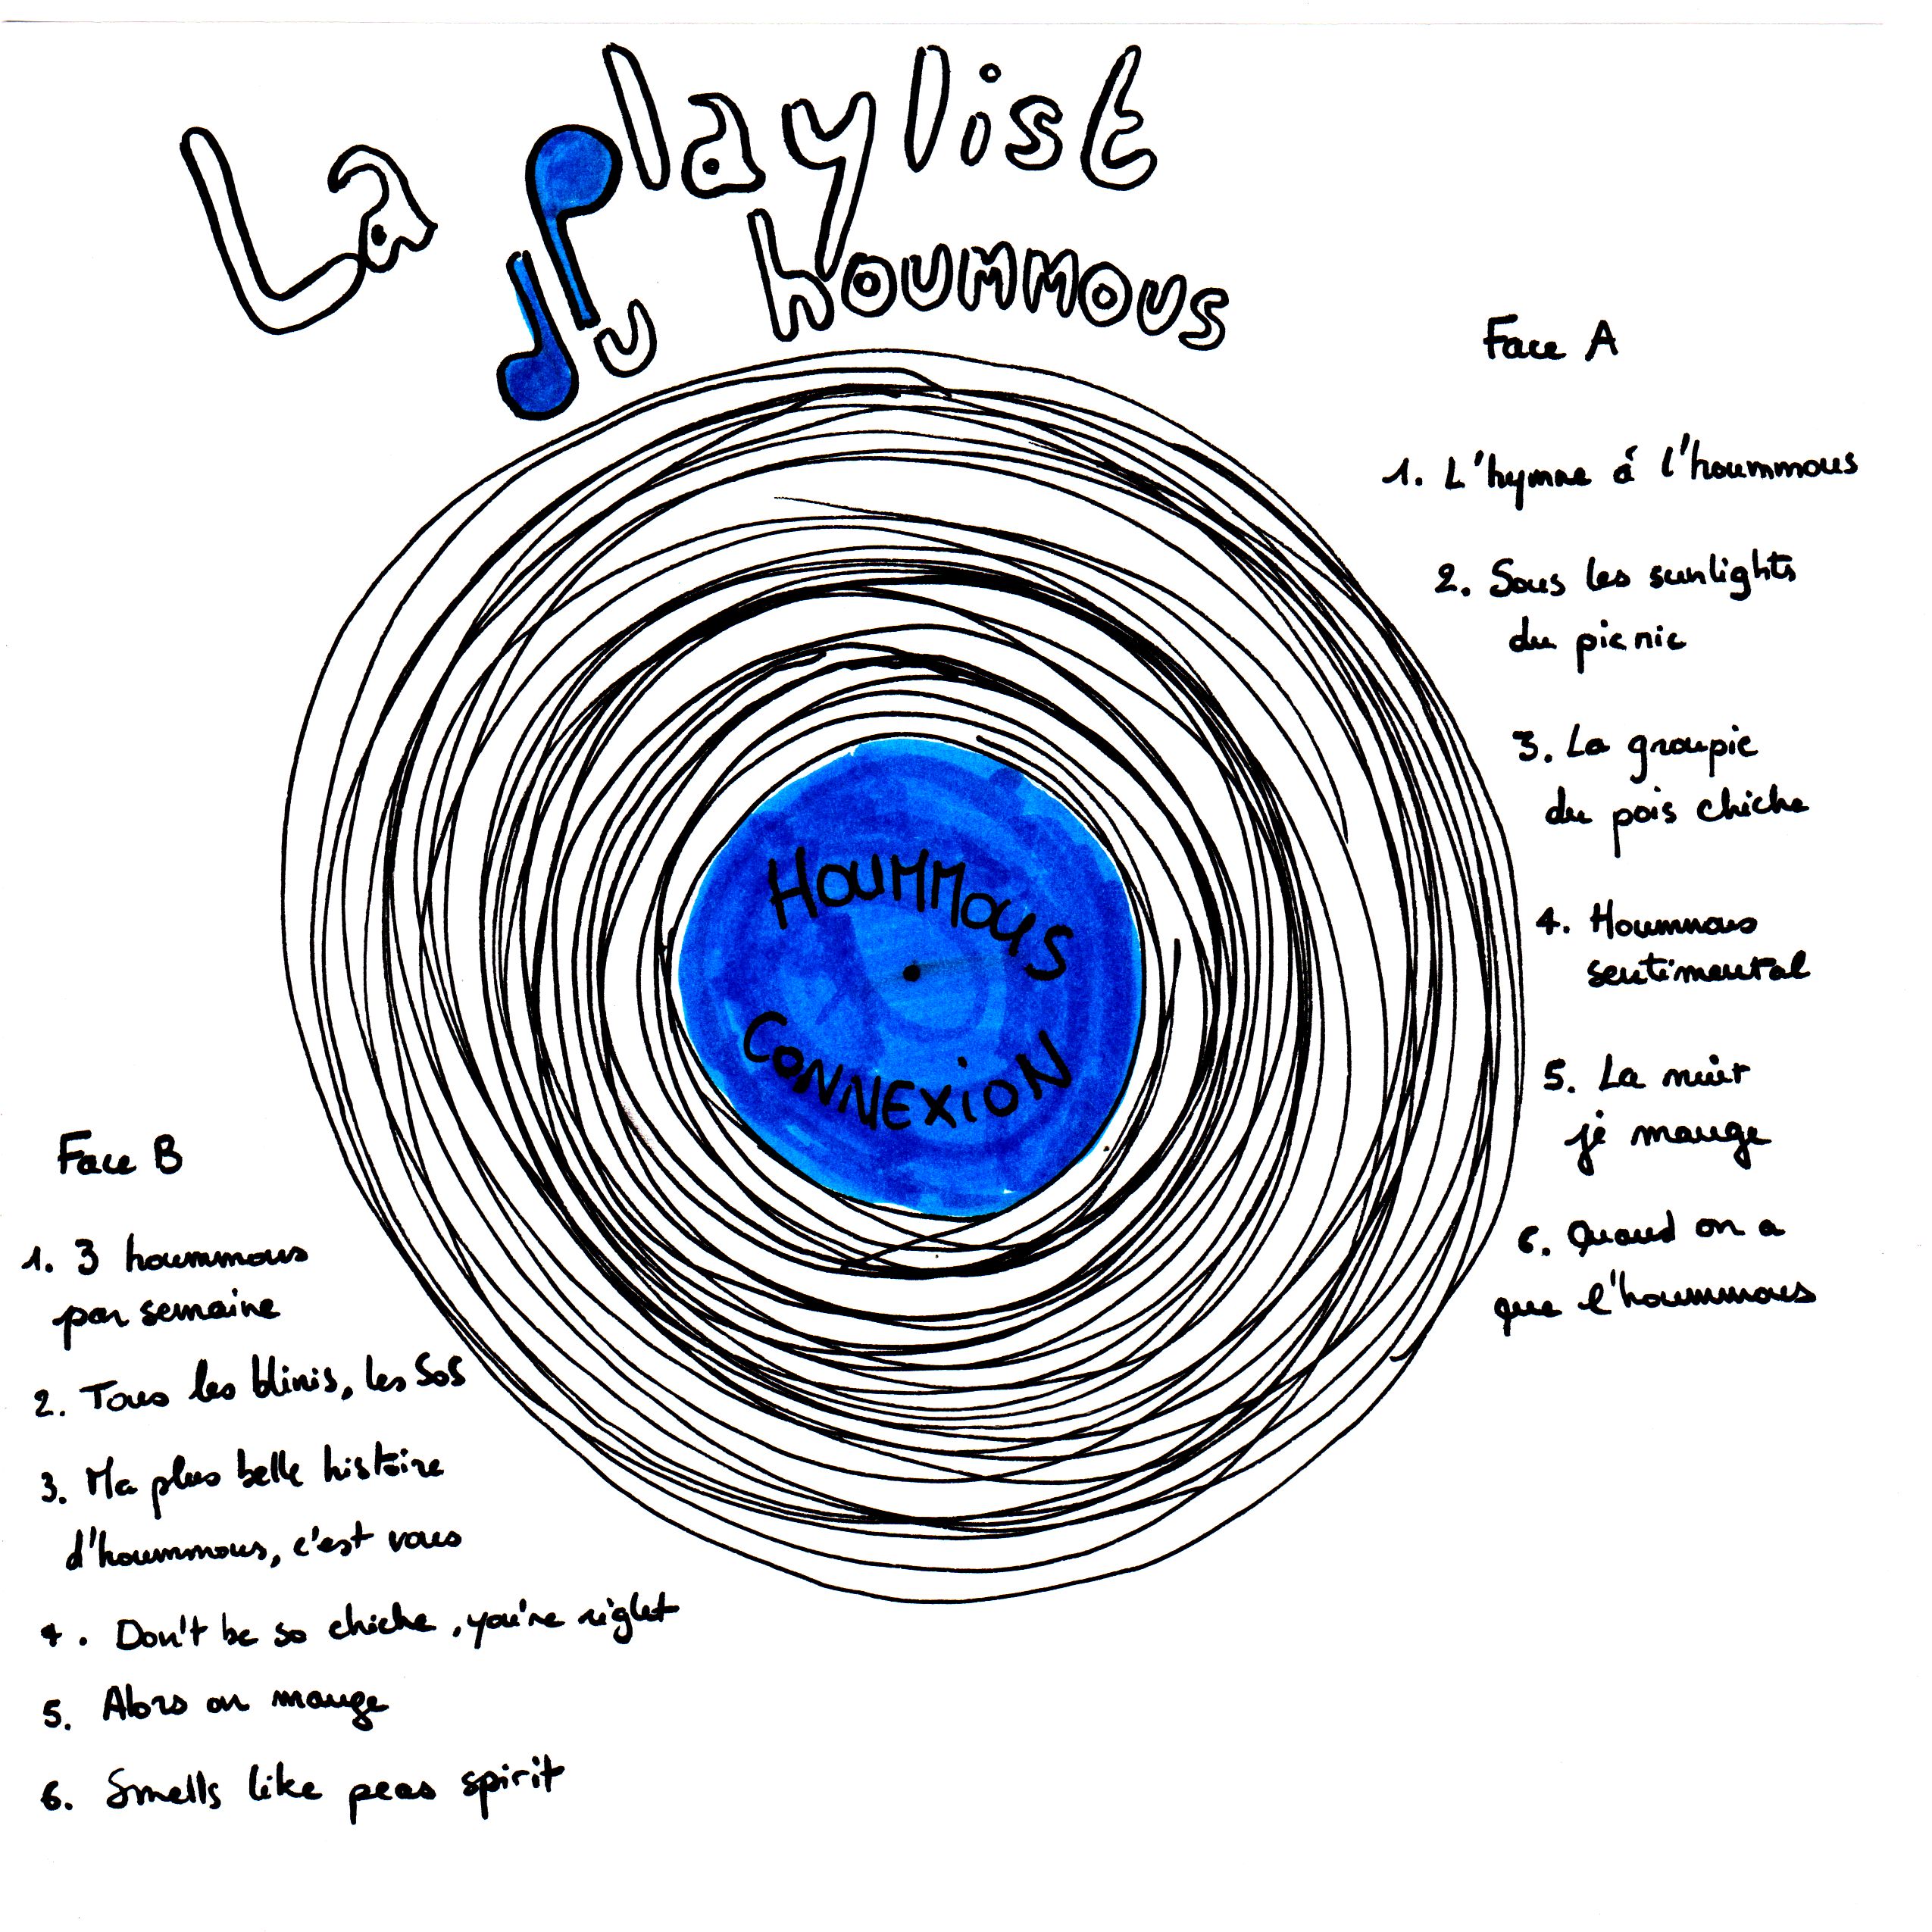 La playlist
du hoummous
Face A
1. L'hymne à l'hoummous
2. Sous les sunlights
du picnic
3. La groupie
du pois chiche
4. Hoummous
sentimental
5. La nuit
je mange
6. Quand on a
que l'hoummous
HOUMMOUS
CONNEXION
Face B
1. 3 hoummous
par semaine
2. Tous les blinis, les SOS
3. Ma plus belle histoire
d'hoummous, c'est vous
4. Don't be so chiche, you're right
5. Alors on mange
6. Smells like peas spirit